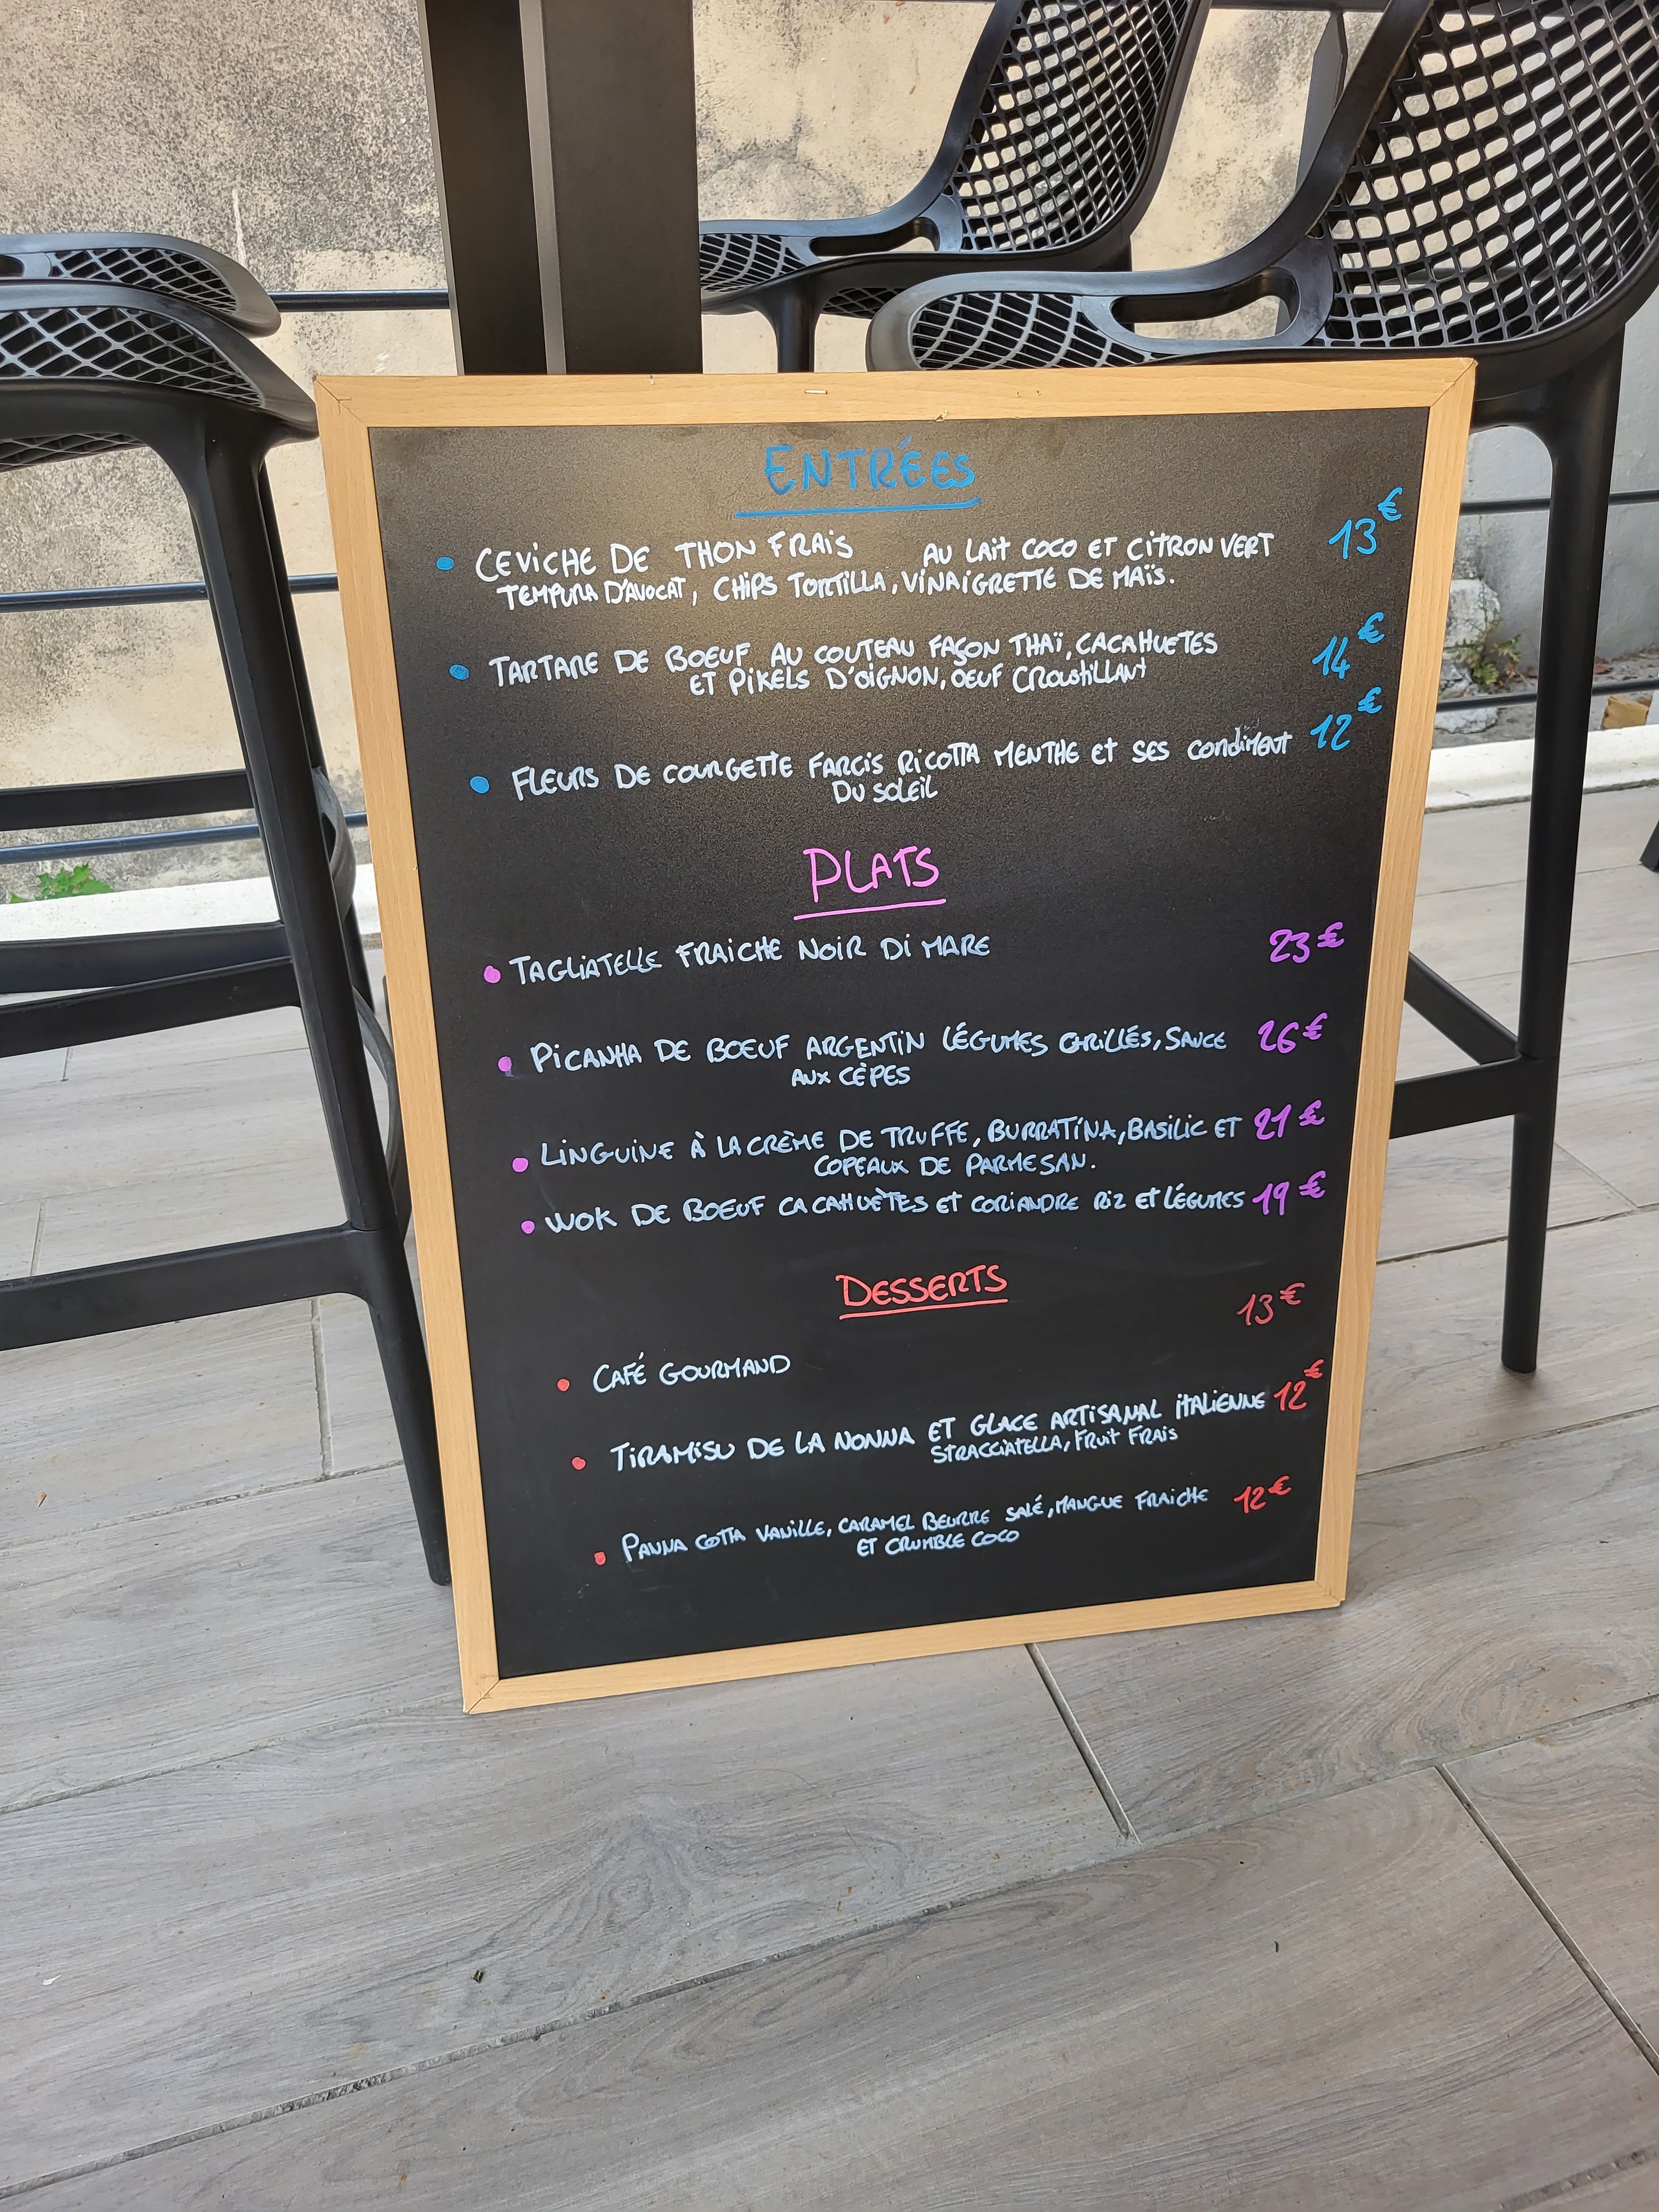 ENTRÉES
• CEVICHE DE THON FRAIS AU LAIT COCO ET CITRON VERT 13€
TEMPURA D'AVOCAT, CHIPS TORTILLA, VINAIGRETTE DE MAÏS.
• TARTARE DE BOEUF AU COUTEAU FAÇON THAÏ, CACAHUETES 14€
ET PIKELS D'OIGNON, OEUF CROUSTILLANT
• FLEURS DE COURGETTE FARCIS RICOTTA MENTHE ET SES CONDIMENT 12€
DU SOLEIL
PLATS
• TAGLIATELLE FRAICHE NOIR DI MARE 23€
• PICANHA DE BOEUF ARGENTIN LÉGUMES GRILLÉS, SAUCE 26€
AUX CÈPES
• LINGUINE À LA CRÈME DE TRUFFE, BURRATINA, BASILIC ET 21€
COPEAUX DE PARMESAN.
• WOK DE BOEUF CACAHUÈTES ET CORIANDRE RIZ ET LÉGUMES 19€
DESSERTS
13€
• CAFÉ GOURMAND
• TIRAMISU DE LA NONNA ET GLACE ARTISANAL ITALIENNE 12€
STRACCIATELLA, FRUIT FRAIS
• PANNA COTTA VANILLE, CARAMEL BEURRE SALÉ, MANGUE FRAICHE 12€
ET CRUMBLE COCO